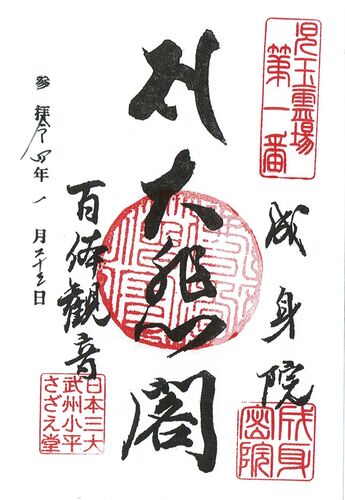 児玉霊場
第一番
成身院
大悲閣
百体観音
参拝令四年一月二十三日
日本三大
武州小平
さざえ堂